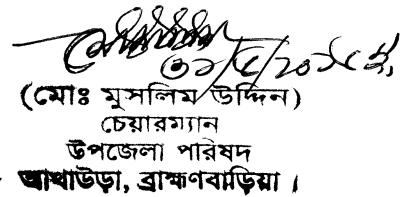 ৩১/৫/২০১৫ ইং
(মোঃ মুসলিম উদ্দিন)
চেয়ারম্যান
উপজেলা পরিষদ
আখাউড়া, ব্রাহ্মণবাড়িয়া।